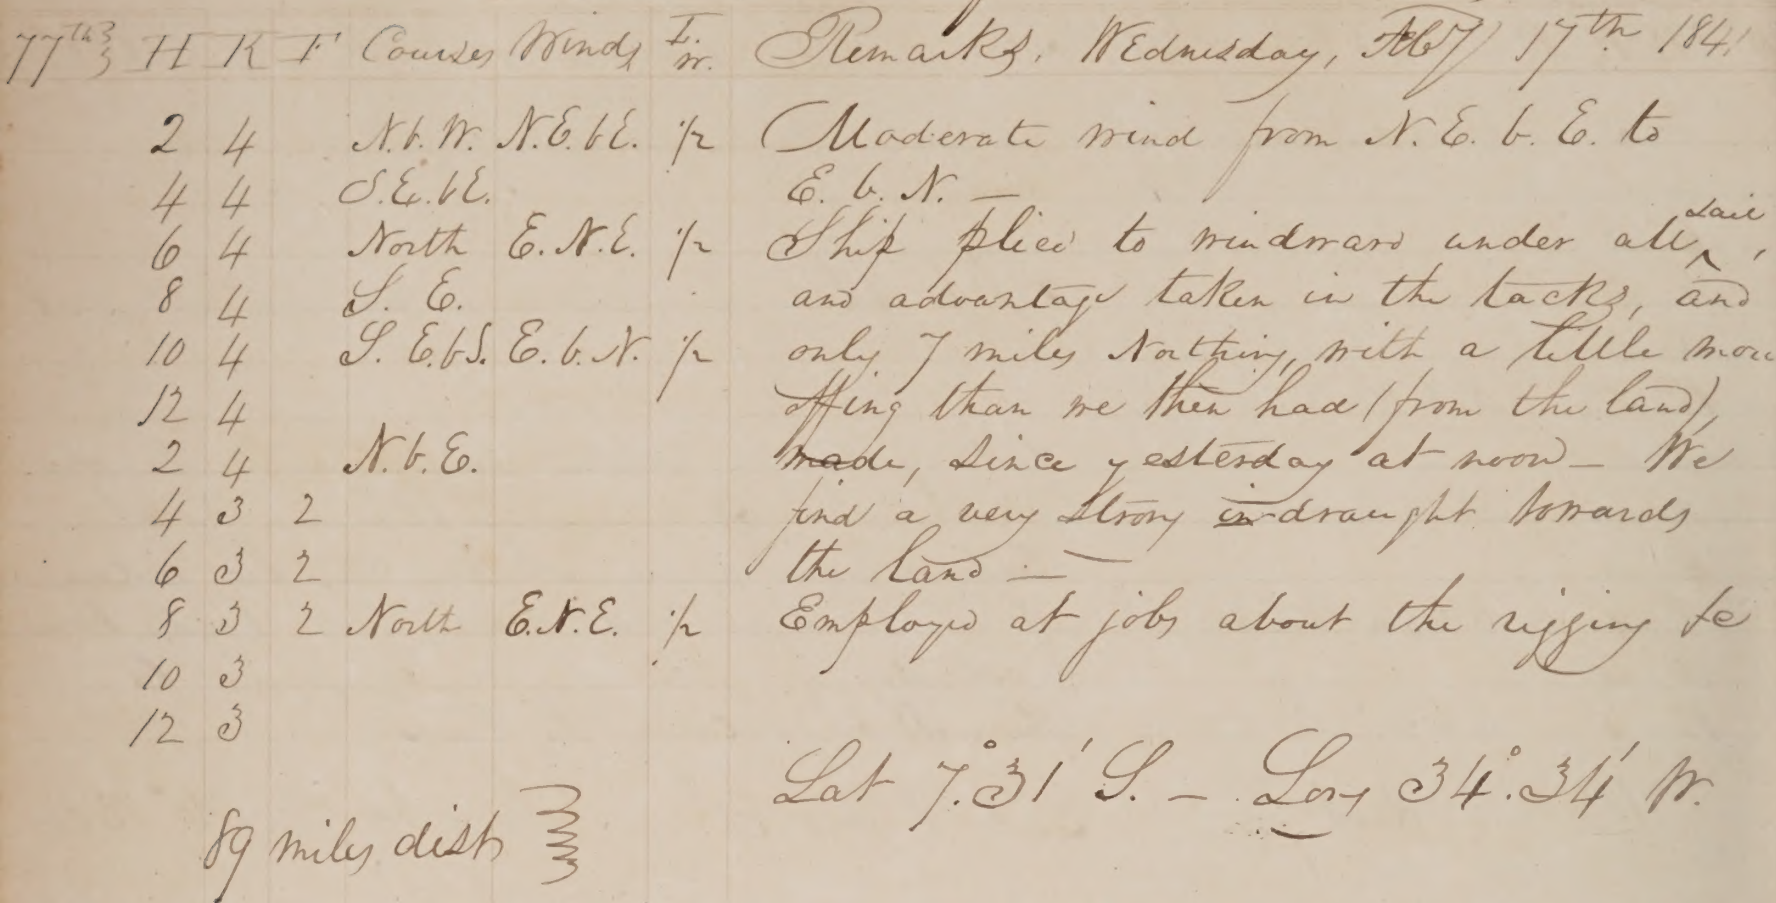 77th H K F Courses Winds L.w. Remarks. Wednesday, Feby 17th 1841
2 4 N.b.W. N.E.bE. 1/2 Moderate wind from N.E.b.E. to
4 4 S.E.bE. E.b.N. —
6 4 North E.N.E. 1/2 Ship plied to windward under all sail,
8 4 S.E. and advantage taken in the tacks, and
10 4 S.E.bS. E.b.N. 1/2 only 7 miles Northing, with a little more
12 4 offing than we then had (from the land)
2 4 N.b.E. made, since yesterday at noon — We
4 3 2 find a very strong in-draught towards
6 3 2 the land —
8 3 2 North E.N.E. 1/2 Employed at jobs about the rigging &c
10 3
12 3
Lat 7.°31' S. — Long 34°.34' W.
89 miles dist